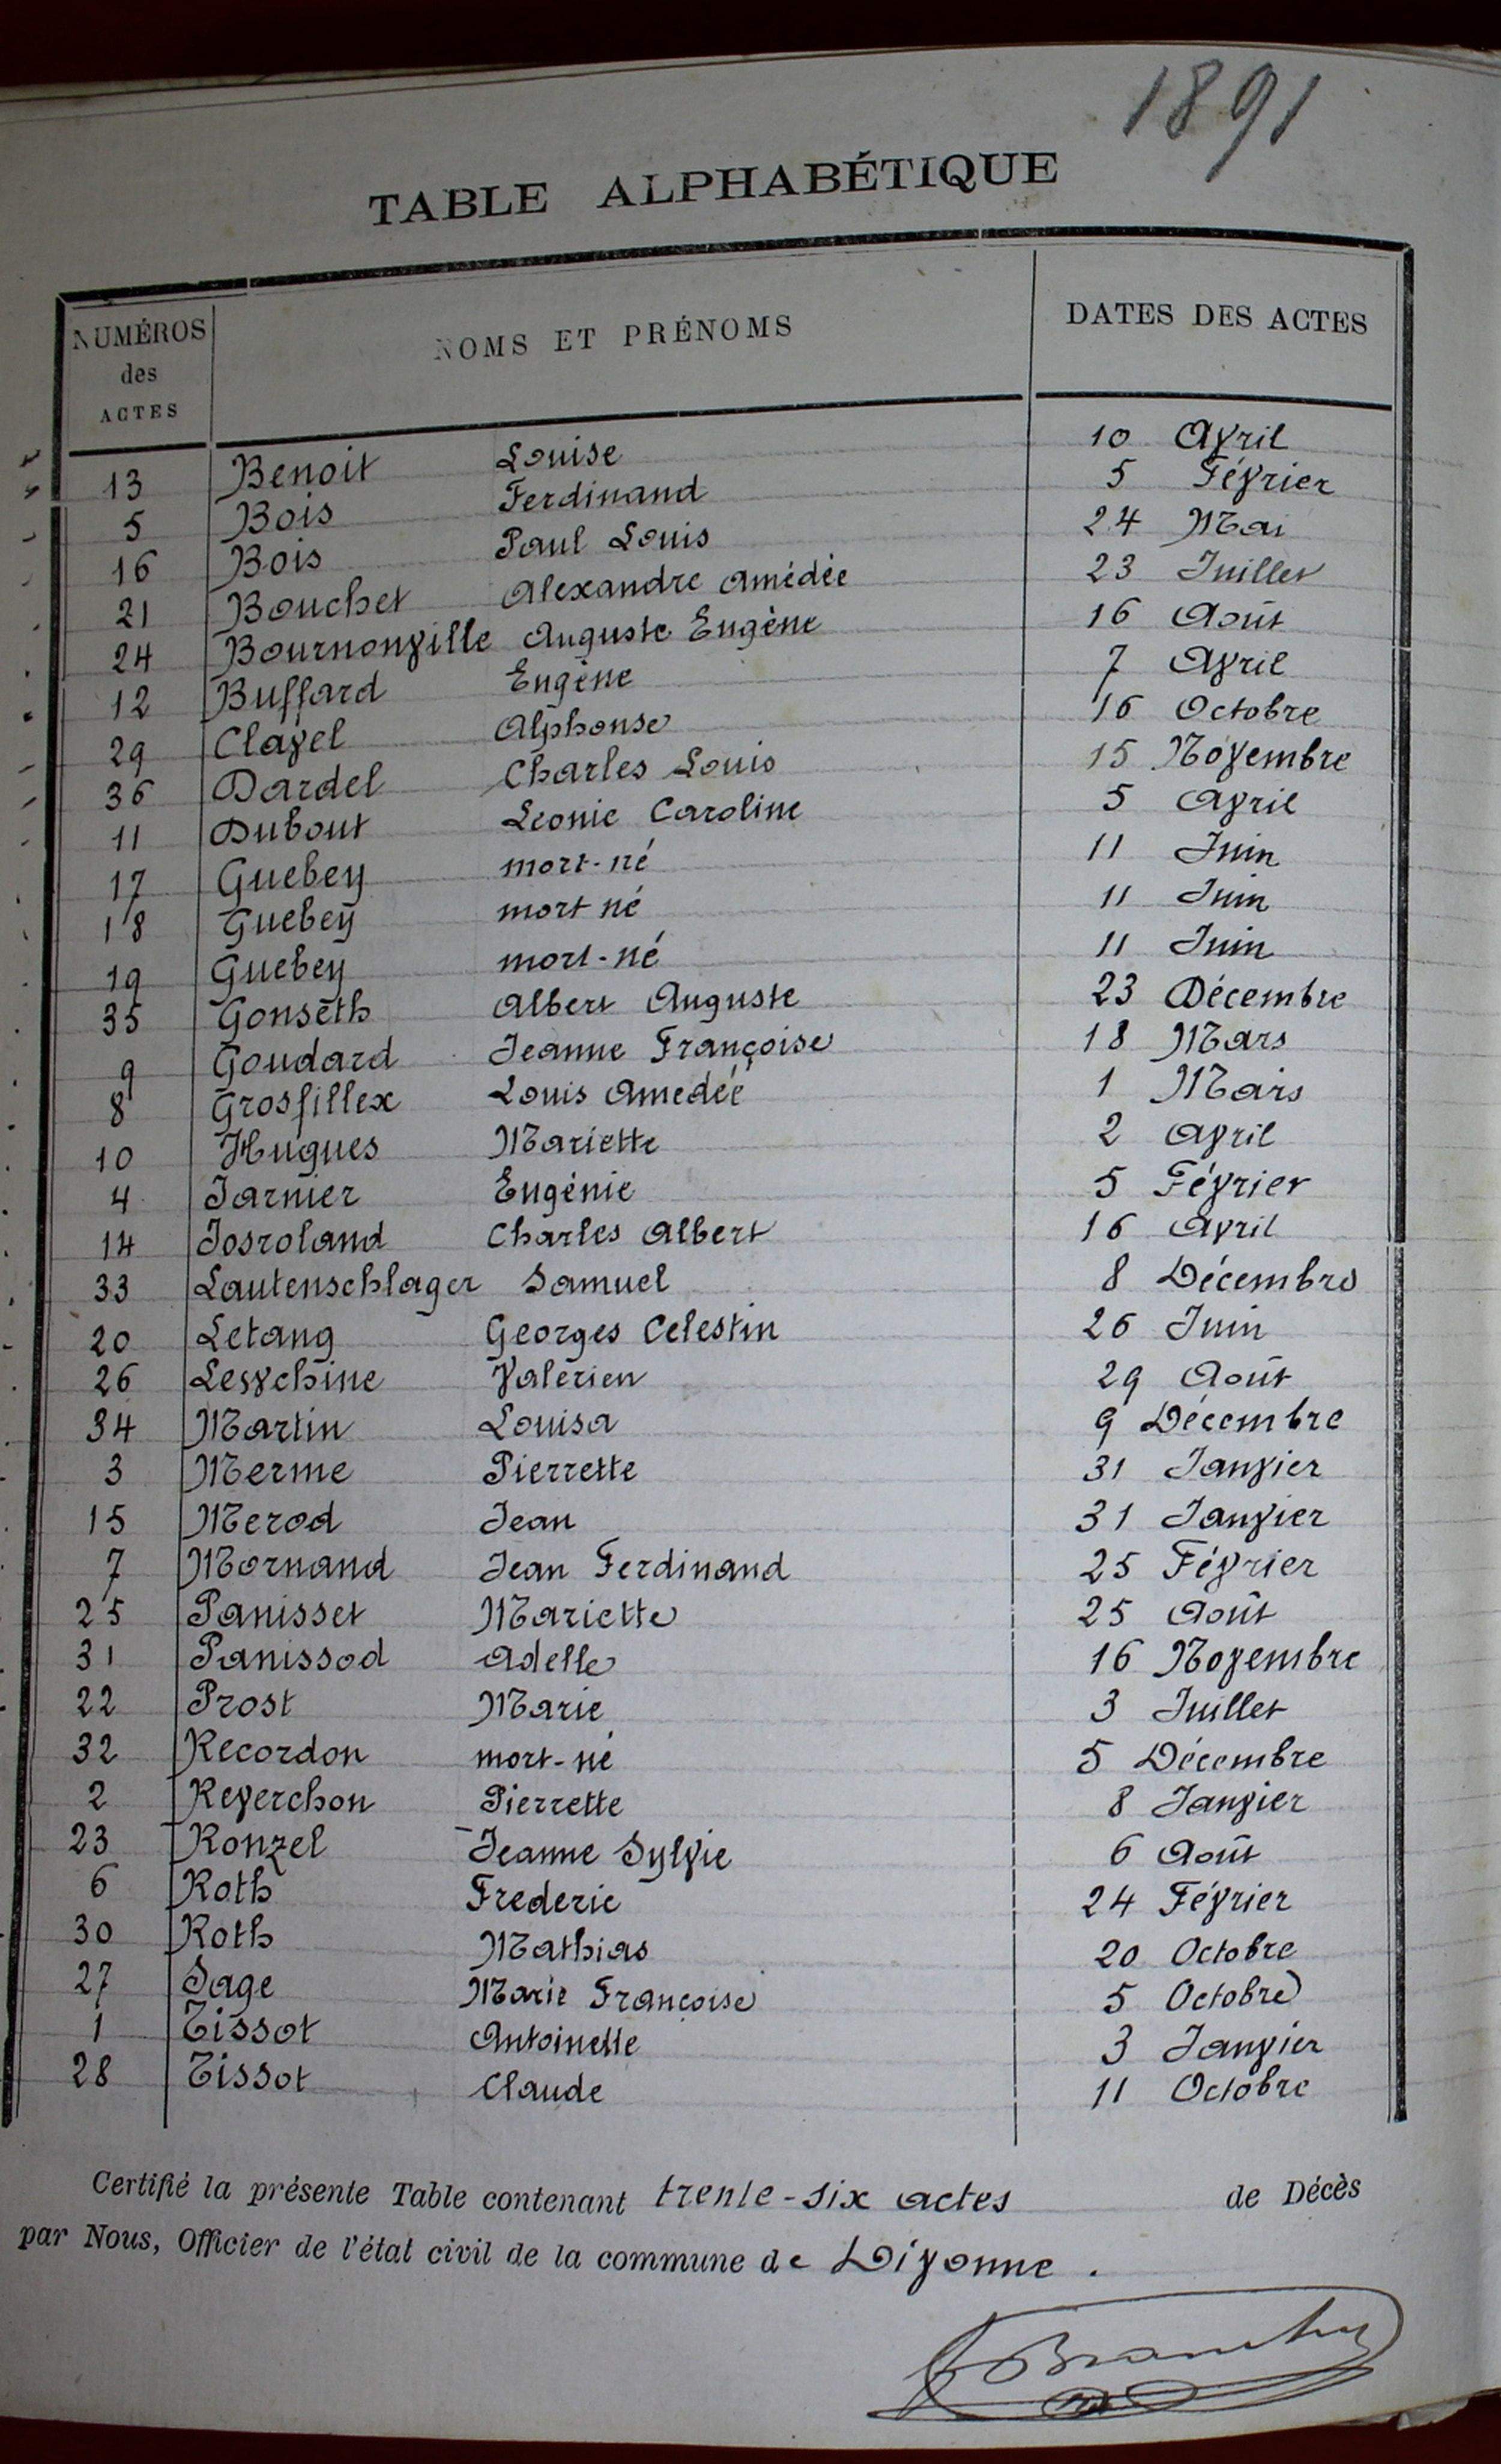 1891
TABLE ALPHABÉTIQUE
NUMÉROS des ACTES NOMS ET PRÉNOMS DATES DES ACTES
13 Benoit Louise 10 Avril
5 Bois Ferdinand 5 Février
16 Bois Paul Louis 24 Mai
21 Bouchet Alexandre Amédée 23 Juillet
24 Bournonville Auguste Eugène 16 Août
12 Buffard Eugène 7 Avril
29 Clavel Alphonse 16 Octobre
36 Dardel Charles Louis 15 Novembre
11 Dubout Leonie Caroline 5 Avril
17 Guebey mort-né 11 Juin
18 Guebey mort né 11 Juin
19 Guebey mort-né 11 Juin
35 Gonseth Albert Auguste 23 Décembre
9 Goudard Jeanne Françoise 18 Mars
8 Grosfillex Louis Amedée 1 Mars
10 Hugues Mariette 2 Avril
4 Jarnier Eugénie 5 Février
14 Josroland Charles Albert 16 Avril
33 Lautenschlager Samuel 8 Décembre
20 Letang Georges Celestin 26 Juin
26 Lesvchine Valérien 29 Août
34 Martin Louisa 9 Décembre
3 Merme Pierrette 31 Janvier
15 Merod Jean 31 Janvier
7 Mornand Jean Ferdinand 25 Février
25 Panisset Mariette 25 Août
31 Panissod Adelle 16 Novembre
22 Prost Marie 3 Juillet
32 Recordon mort-né 5 Décembre
2 Reverchon Pierrette 8 Janvier
23 Ronzel Jeanne Sylvie 6 Août
6 Roth Frederic 24 Février
30 Roth Mathias 20 Octobre
27 Sage Marie Françoise 5 Octobre
1 Tissot Antoinette 3 Janvier
28 Tissot Claude 11 Octobre
Certifié la présente Table contenant trente-six actes de Décès
par Nous, Officier de l'état civil de la commune de Divonne.